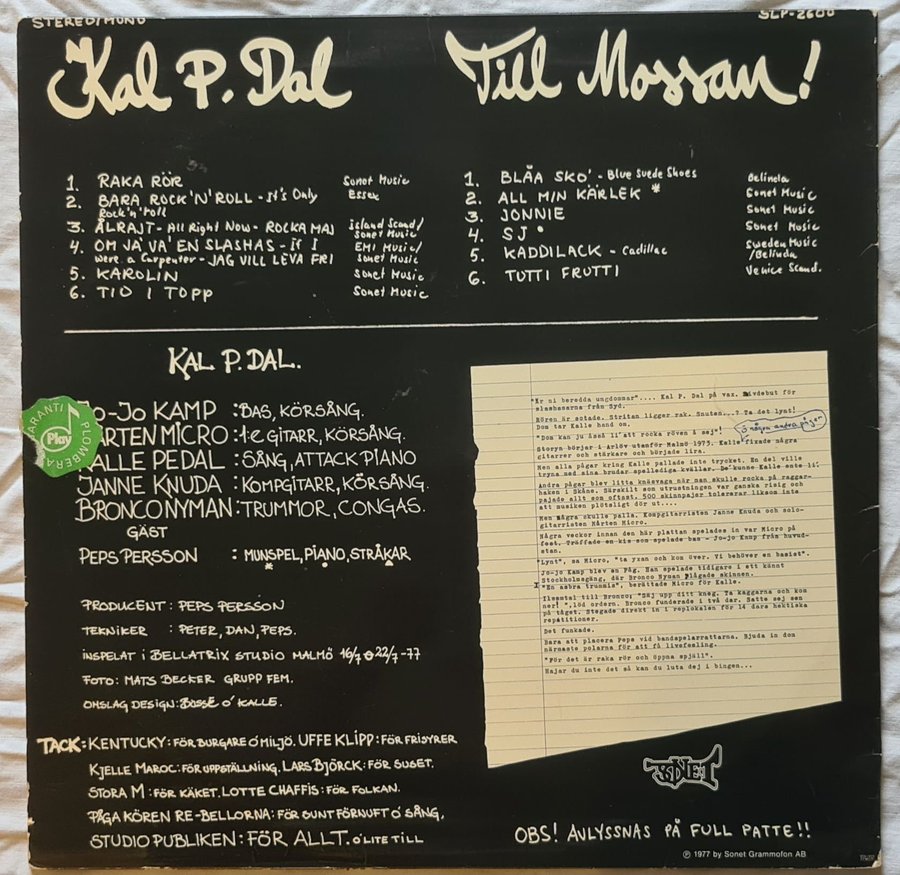 STEREO/MONO
SLP-2600
Kal P. Dal
Till Mossan!
1. RAKA RÖR Sonet Music
2. BARA ROCK'N'ROLL - It's Only Essex
Rock'n'roll
3. ÅLRAJT - All Right Now - ROCKA MAJ Island Scand/
Sonet Music
4. OM JA' VA' EN SLASHAS - If I EMI Music/
Were a Carpenter - JAG VILL LEVA FRI Sonet Music
5. KAROLIN Sonet Music
6. TIO I TOPP Sonet Music
1. BLÅA SKO' - Blue Suede Shoes Belinda
2. ALL MIN KÄRLEK * Sonet Music
3. JONNIE Sonet Music
4. SJ • Sonet Music
5. KADDILACK - Cadillac Sweden Music
/Belinda
6. TUTTI FRUTTI Venice Scand.
KAL P. DAL.
JO-JO KAMP : BAS, KÖRSÅNG.
MÅRTEN MICRO : 1:E GITARR, KÖRSÅNG.
KALLE PEDAL : SÅNG, ATTACK PIANO
JANNE KNUDA : KOMPGITARR, KÖRSÅNG.
BRONCO NYMAN : TRUMMOR, CONGAS.
GÄST
PEPS PERSSON : MUNSPEL, PIANO, STRÅKAR
GARANTI
Play
PLOMBERA
PRODUCENT : PEPS PERSSON
TEKNIKER : PETER, DAN, PEPS.
INSPELAT I BELLATRIX STUDIO MALMÖ 16/7 O 22/7 -77
FOTO: MATS BECKER GRUPP FEM.
OMSLAG DESIGN: BOSSE O' KALLE.
TACK: KENTUCKY: FÖR BURGARE O' MILJÖ. UFFE KLIPP: FÖR FRISYRER
KJELLE MAROC: FÖR UPPSTÄLLNING. LARS BJÖRCK: FÖR SUSET.
STORA M: FÖR KÄKET. LOTTE CHAFFIS: FÖR FOLKAN.
PÅGA KÖREN RE-BELLORNA: FÖR SUNT FÖRNUFT O' SÅNG,
STUDIO PUBLIKEN: FÖR ALLT. O' LITE TILL
"Är ni beredda ungdomar".... Kal P. Dal på vax. Livdebut för
slashasarna från Syd.
Rören är sotade. Stritan ligger rak. Snuten...? Ta det lynt!
Dom tar Kalle hand om.
"Dom kan ju åsså li'att rocka röven å sej"! å några andra påjar
Storyn börjar i Arlöv utanför Malmö 1973. Kalle fixade några
gitarrer och stärkare och började lira.
Men alla pågar kring Kalle pallade inte trycket. En del ville
tryna med sina brudar spellediga kvällar. De'kunne Kalle ente li'
Andra pågar blev litta knäevaga när man skulle rocka på raggar-
haken i Skåne. Särskilt som utrustningen var ganska risig och
pajade allt som oftast. 500 skinnpajer tolererar liksom inte
att musiken plötsligt dör ut....
Men några skulle palla. Kompgitarristen Janne Knuda och solo-
gitarristen Mårten Micro.
Några veckor innan den här plattan spelades in var Micro på
fest. Träffade en kis som spelade bas - Jo-jo Kamp från huvud-
stan.
"Lynt", sa Micro, "ta yxan och kom över. Vi behöver en basist".
Jo-jo Kamp blev en Påg. Han spelade tidigare i ett känt
Stockholmsgäng, där Bronco Nyman plågade skinnen.
"En asbra trummis", berättade Micro för Kalle.
Ilsamtal till Bronco; "Säj upp ditt kneg. Ta kaggarna och kom
ner! ",löd ordern. Bronco funderade i två dar. Satte sej sen
på tåget. Stegade direkt in i replokalen för 14 dars hektiska
repetitioner.
Det funkade.
Bara att placera Peps vid bandspelarrattarna. Bjuda in dom
närmaste polarna för att få livefeeling.
"För det är raka rör och öppna spjäll".
Hajar du inte det så kan du luta dej i bingen...
SONET
OBS! AVLYSSNAS PÅ FULL PATTE!!
℗ 1977 by Sonet Grammofon AB